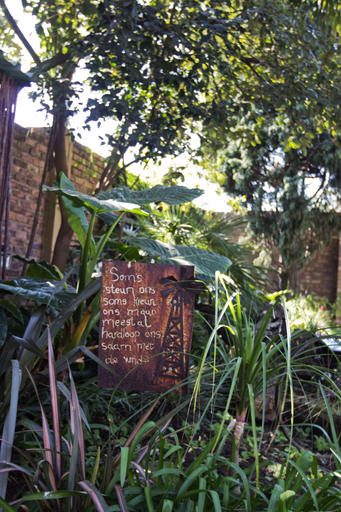 Som's
steun ons
soms kreun
ons maar
meestal
hardloop ons
saam met
die wind